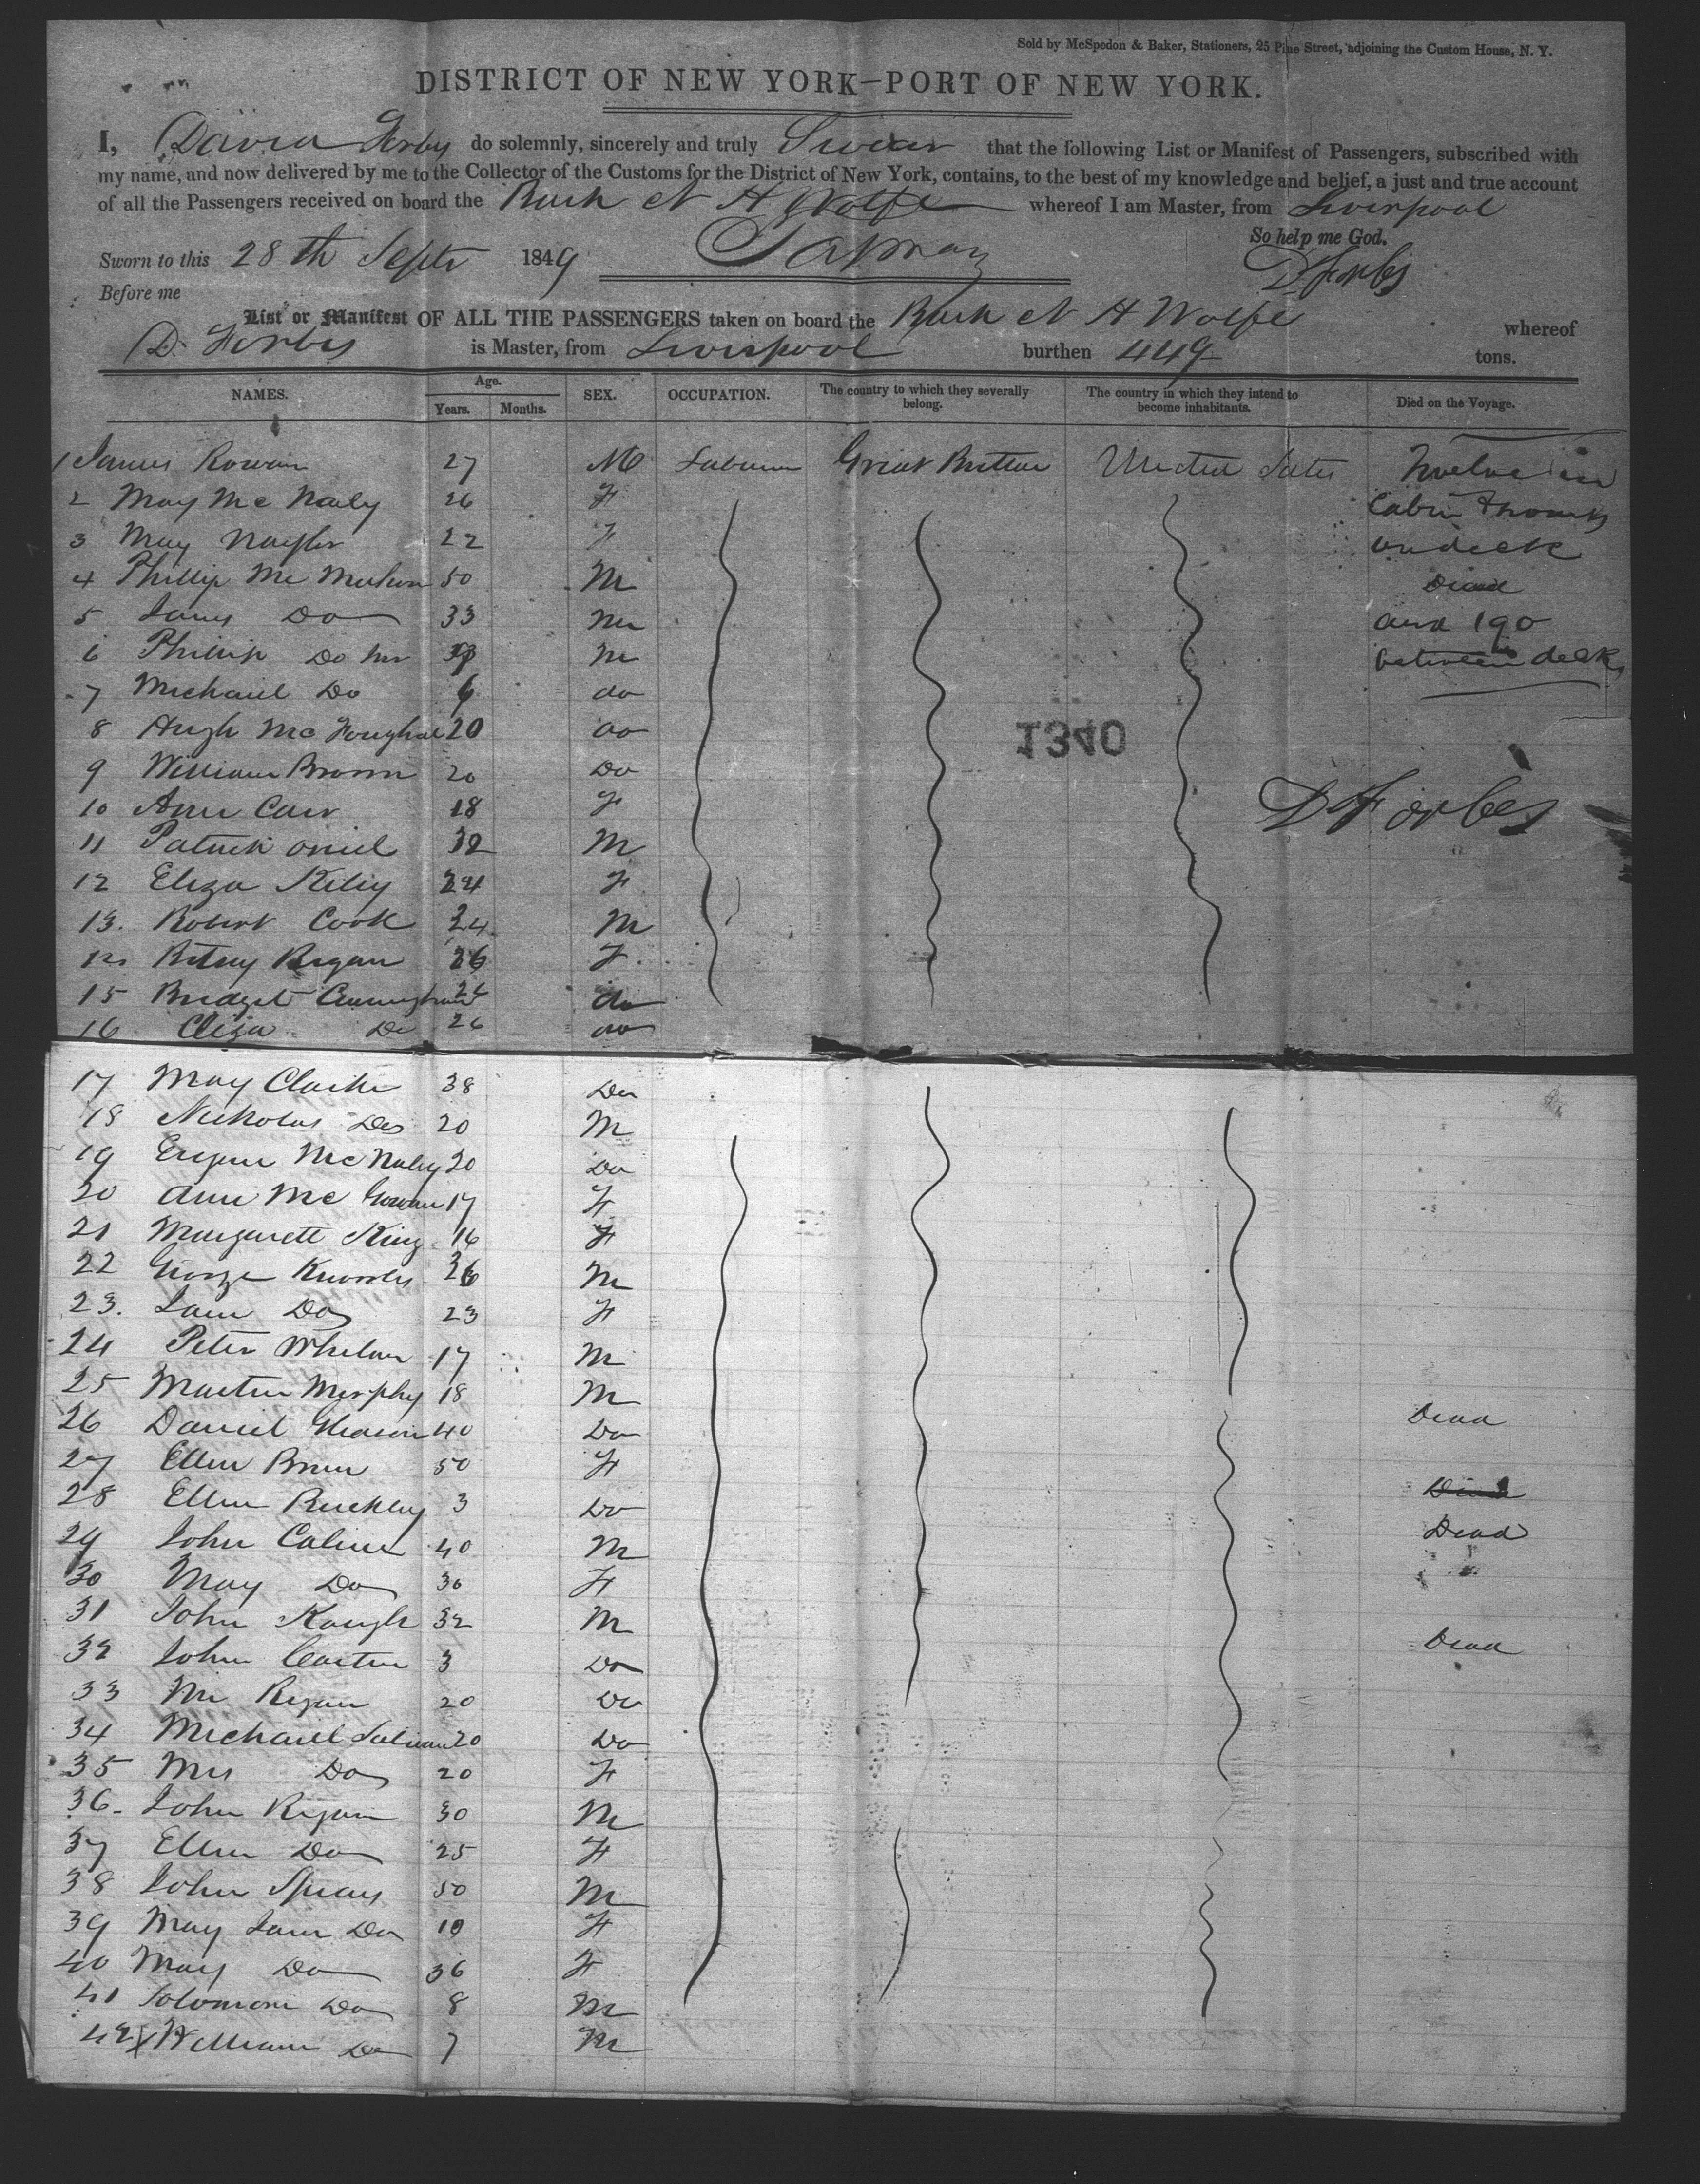 Sold by McSpedon & Baker, Stationers, 25 Pine Street, adjoining the Custom House, N. Y.
DISTRICT OF NEW YORK–PORT OF NEW YORK.
I, David Forbs do solemnly, sincerely and truly Swear that the following List or Manifest of Passengers, subscribed with
my name, and now delivered by me to the Collector of the Customs for the District of New York, contains, to the best of my knowledge and belief, a just and true account
of all the Passengers received on board the Bark N H Wolfe whereof I am Master, from Liverpool
So help me God.
Sworn to this 28th Septr 1849 D Forbes
Before me
List or Manifest OF ALL THE PASSENGERS taken on board the Bark N H Wolfe whereof
D. Forbes is Master, from Liverpool burthen 449 tons.
NAMES. Age. Years. Months. SEX. OCCUPATION. The country to which they severally belong. The country in which they intend to become inhabitants. Died on the Voyage.
1 James Rowan 27 M Labourer Great Britten United Sates Twelve in
2 May Mc Naly 26 F Cabin
3 May Naylor 22 F on deck
4 Phillip Mc Mechan 50 M Dead
5 James Do 33 M and 190
6 Phillip Do M between decks
7 Michael Do 6 do
8 Hugh Mc 20 do
1340
9 William Brown 20 Do
10 Ann Carr 18 F D Forbes
11 Patrick Oniel 32 M
12 Eliza Kiley 24 F
13. Robert Cook 24 M
Betsy Regan 26 F
15 Bridget Cunningham 26 do
16 Eliza Do 26 do
17 May Clarke 38 Do
18 Nickolas Do 20 M
19 Eugene Mc Naly 20 Do
20 Ann Mc Gowan 17 F
21 Margarett King 16 F
22 George Knowles 26 M
23. Jane Do 23 F
24 Peter Whelan 17 M
25 Martin Murphy 18 M
26 Daniel Gleason 40 Do Dead
27 Ellen Brien 50 F
28 Ellen Buckley 3 Do Dead
29 John Caline 40 M Dead
30 May Do 30 F
31 John Keough 32 M
32 John Carter 3 Do Dead
33 Mr Ryan 20 Do
34 Michael 20 Do
35 Mrs Do 20 F
36- John Ryan 30 M
37 Ellen Do 25 F
38 John Spears 50 M
39 May Jane Do 10 F
40 May Do 36 F
41 Solomon Do 8 M
42 X William Do 7 M